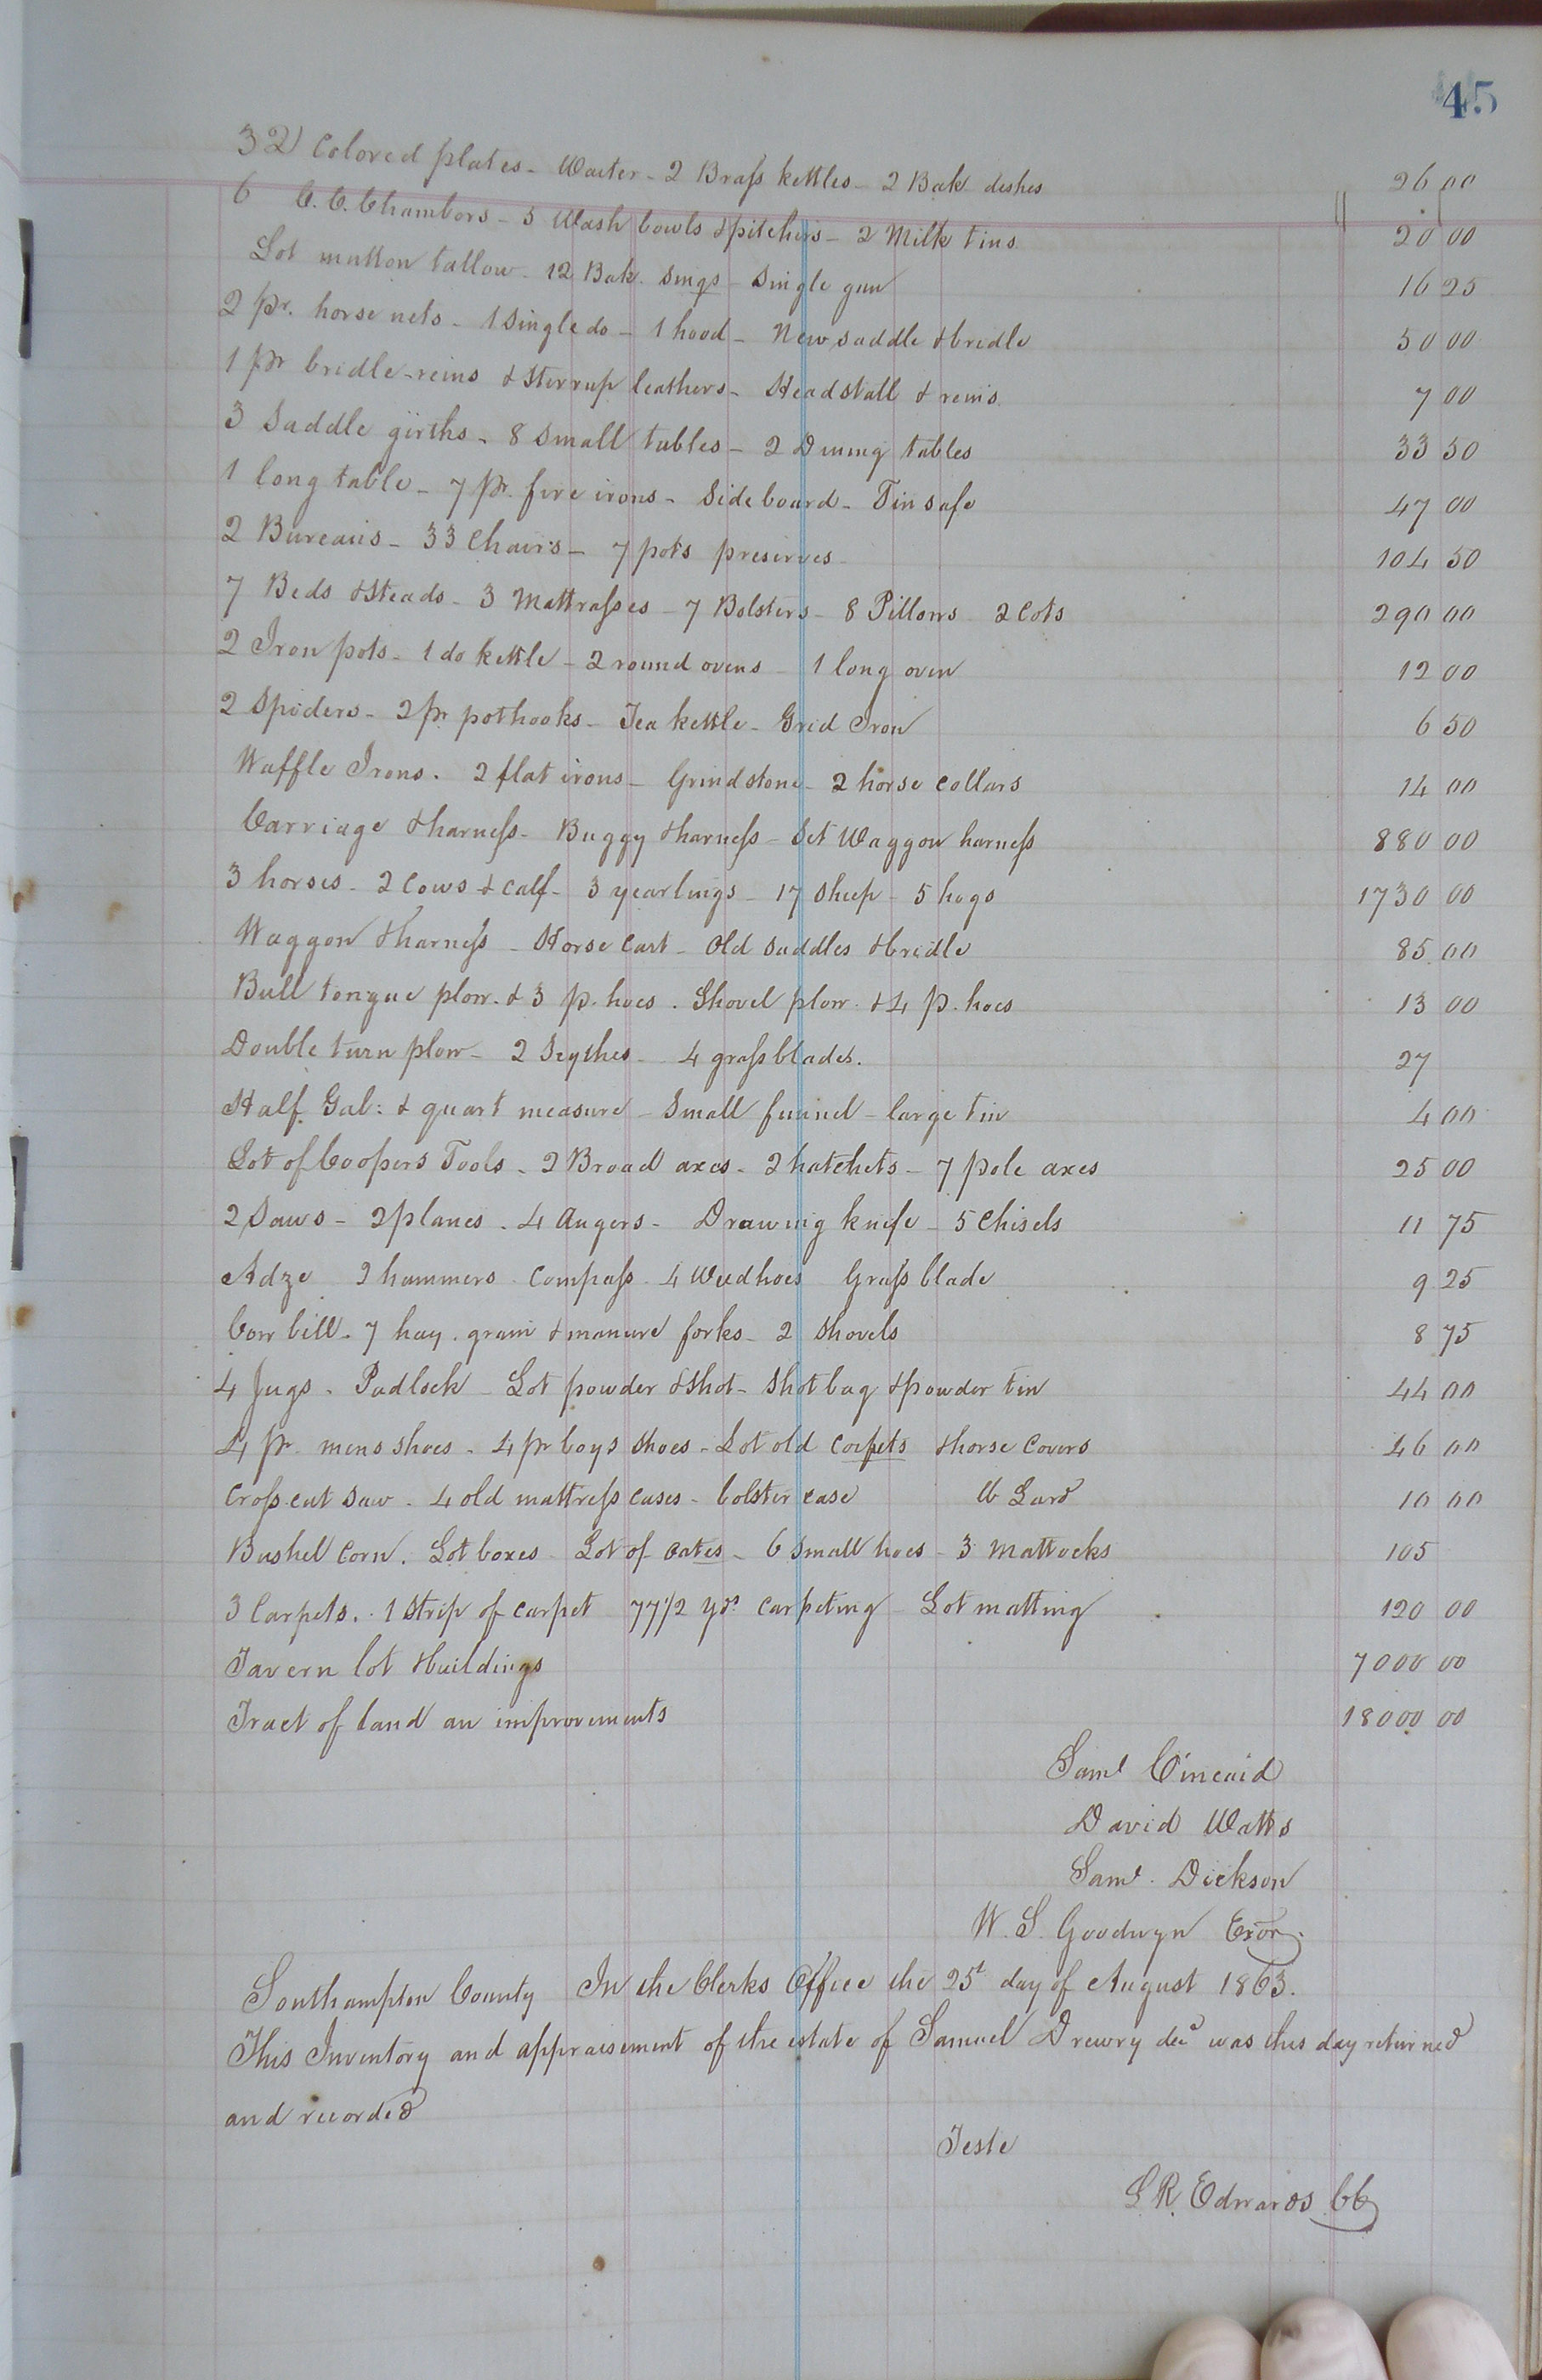 45
32 Colored plates - Waiter - 2 Brass kettles - 2 Bak dishes 26 00
6 C. C. Chambers - 5 Wash bowls & pitchers - 2 Milk tins 20 00
Lot mutton tallow - 12 Bak. - Single gun 16 25
2 pr. horse nets - 1 single do - 1 hood - New saddle & bridle 50 00
1 pr bridle-reins & Stirrup leathers - Headstall & reins 7 00
3 Saddle girths - 8 Small tables - 2 Dining tables 33 50
1 long table - 7 pr. fire irons - Sideboard - Tin safe 47 00
2 Bureaus - 33 Chairs - 7 pots preserves 104 50
7 Beds & Steads - 3 Mattrasses - 7 Bolsters - 8 Pillows 2 Cots 290 00
2 Iron pots - 1 do kettle - 2 round ovens - 1 long oven 12 00
2 Spiders - 2 pr pothooks - Tea kettle - Grid Iron 6 50
Waffle Irons. 2 flat irons - Grindstone - 2 horse collars 14 00
Carriage & harness - Buggy & harness - Set Waggon harness 880 00
3 horses - 2 Cows & calf - 3 yearlings - 17 sheep - 5 hogs 1730 00
Waggon & harness - Horse Cart - Old saddles & bridle 85 00
Bull tongue plow. & 3 p. hoes. Shovel plow. & 4 p. hoes 13 00
Double turn plow - 2 Scythes - 4 grass blades. 27
Half Gal: & quart measure - Small funnel - large tin 4 00
Lot of Coopers Tools - 2 Broad axes - 2 hatchets - 7 pole axes 25 00
2 Saws - 2 planes - 4 Augers - Drawing knife - 5 Chisels 11 75
Adze 2 hammers Compass 4 Weedhoes Grass blade 9 25
Cow bill - 7 hay. grain & manure forks - 2 Shovels 8 75
4 Jugs - Padlock - Lot powder & Shot - Shot bag & powder tin 44 00
4 pr. mens shoes - 4 pr boys shoes - Lot old carpets & horse Covers 46 00
Cross cut Saw - 4 old mattress cases - bolster case lb Lard 10 00
Bushel Corn. Lot boxes - Lot of oates - 6 Small hoes - 3 Mattocks 105
3 Carpets. 1 Strip of carpet 77 1/2 yds. Carpeting - Lot matting 120 00
Tavern lot & buildings 7000 00
Tract of land an improvements 18000 00
Saml Cincaid
David Watts
Saml. Dickson
W. S. Goodwyn Exor.
Southampton County In the Clerks Office the 25t day of August 1863.
This Inventory and appraisement of the estate of Samuel Drewry decd was this day returned
and recorded
Teste
L R. Edwards CC